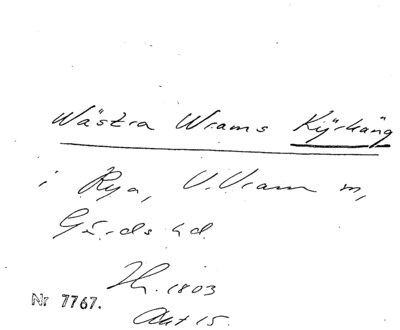 Wästra Wrams Kyrkäng
i Rya, V. Vram m,
Gärds hd.
Jh. 1803
Akt 15.
Nr 7767.